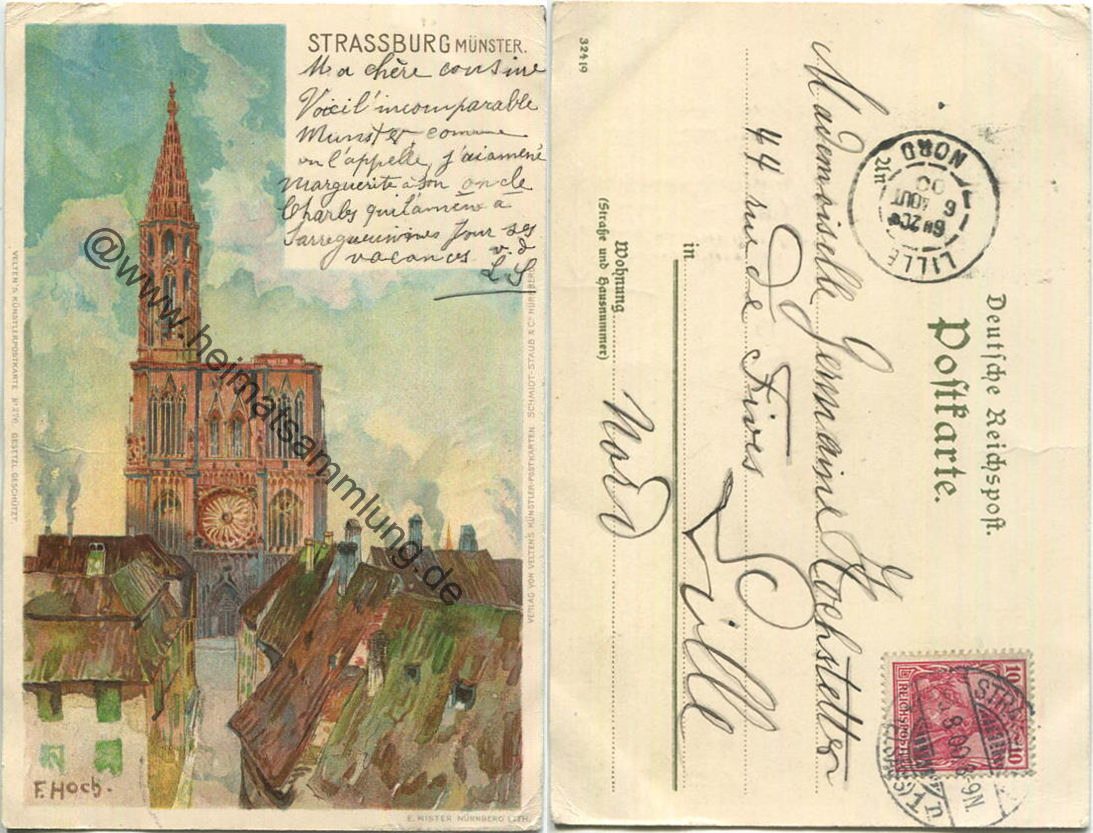 STRASSBURG MÜNSTER.
Ma chère cousine
Voici l'incomparable
Munster, comme
on l'appelle, j'ai amené
Marguerite à son oncle
Charles qui l'amène à
Sarreguemines pour ses
vacances v. d
L S
VELTEN'S KÜNSTLERPOSTKARTE No 276 GESETZL. GESCHÜTZT.
VERLAG VON VELTEN'S KÜNSTLER-POSTKARTEN SCHMIDT-STAUB & Co NÜRNBERG
@www.heimatsammlung.de
F. HOCH.
E. NISTER NÜRNBERG LITH.
Deutsche Reichspost.
Postkarte.
LILLE
6H 20
6 AOUT
00
NORD
10 REICHSPOST 10
STRASSBURG
8.00 8-9N.
Mademoiselle Germaine Hochstetter
44 rue de Fives
in
Lille
Wohnung
(Straße und Hausnummer)
Nord
32419